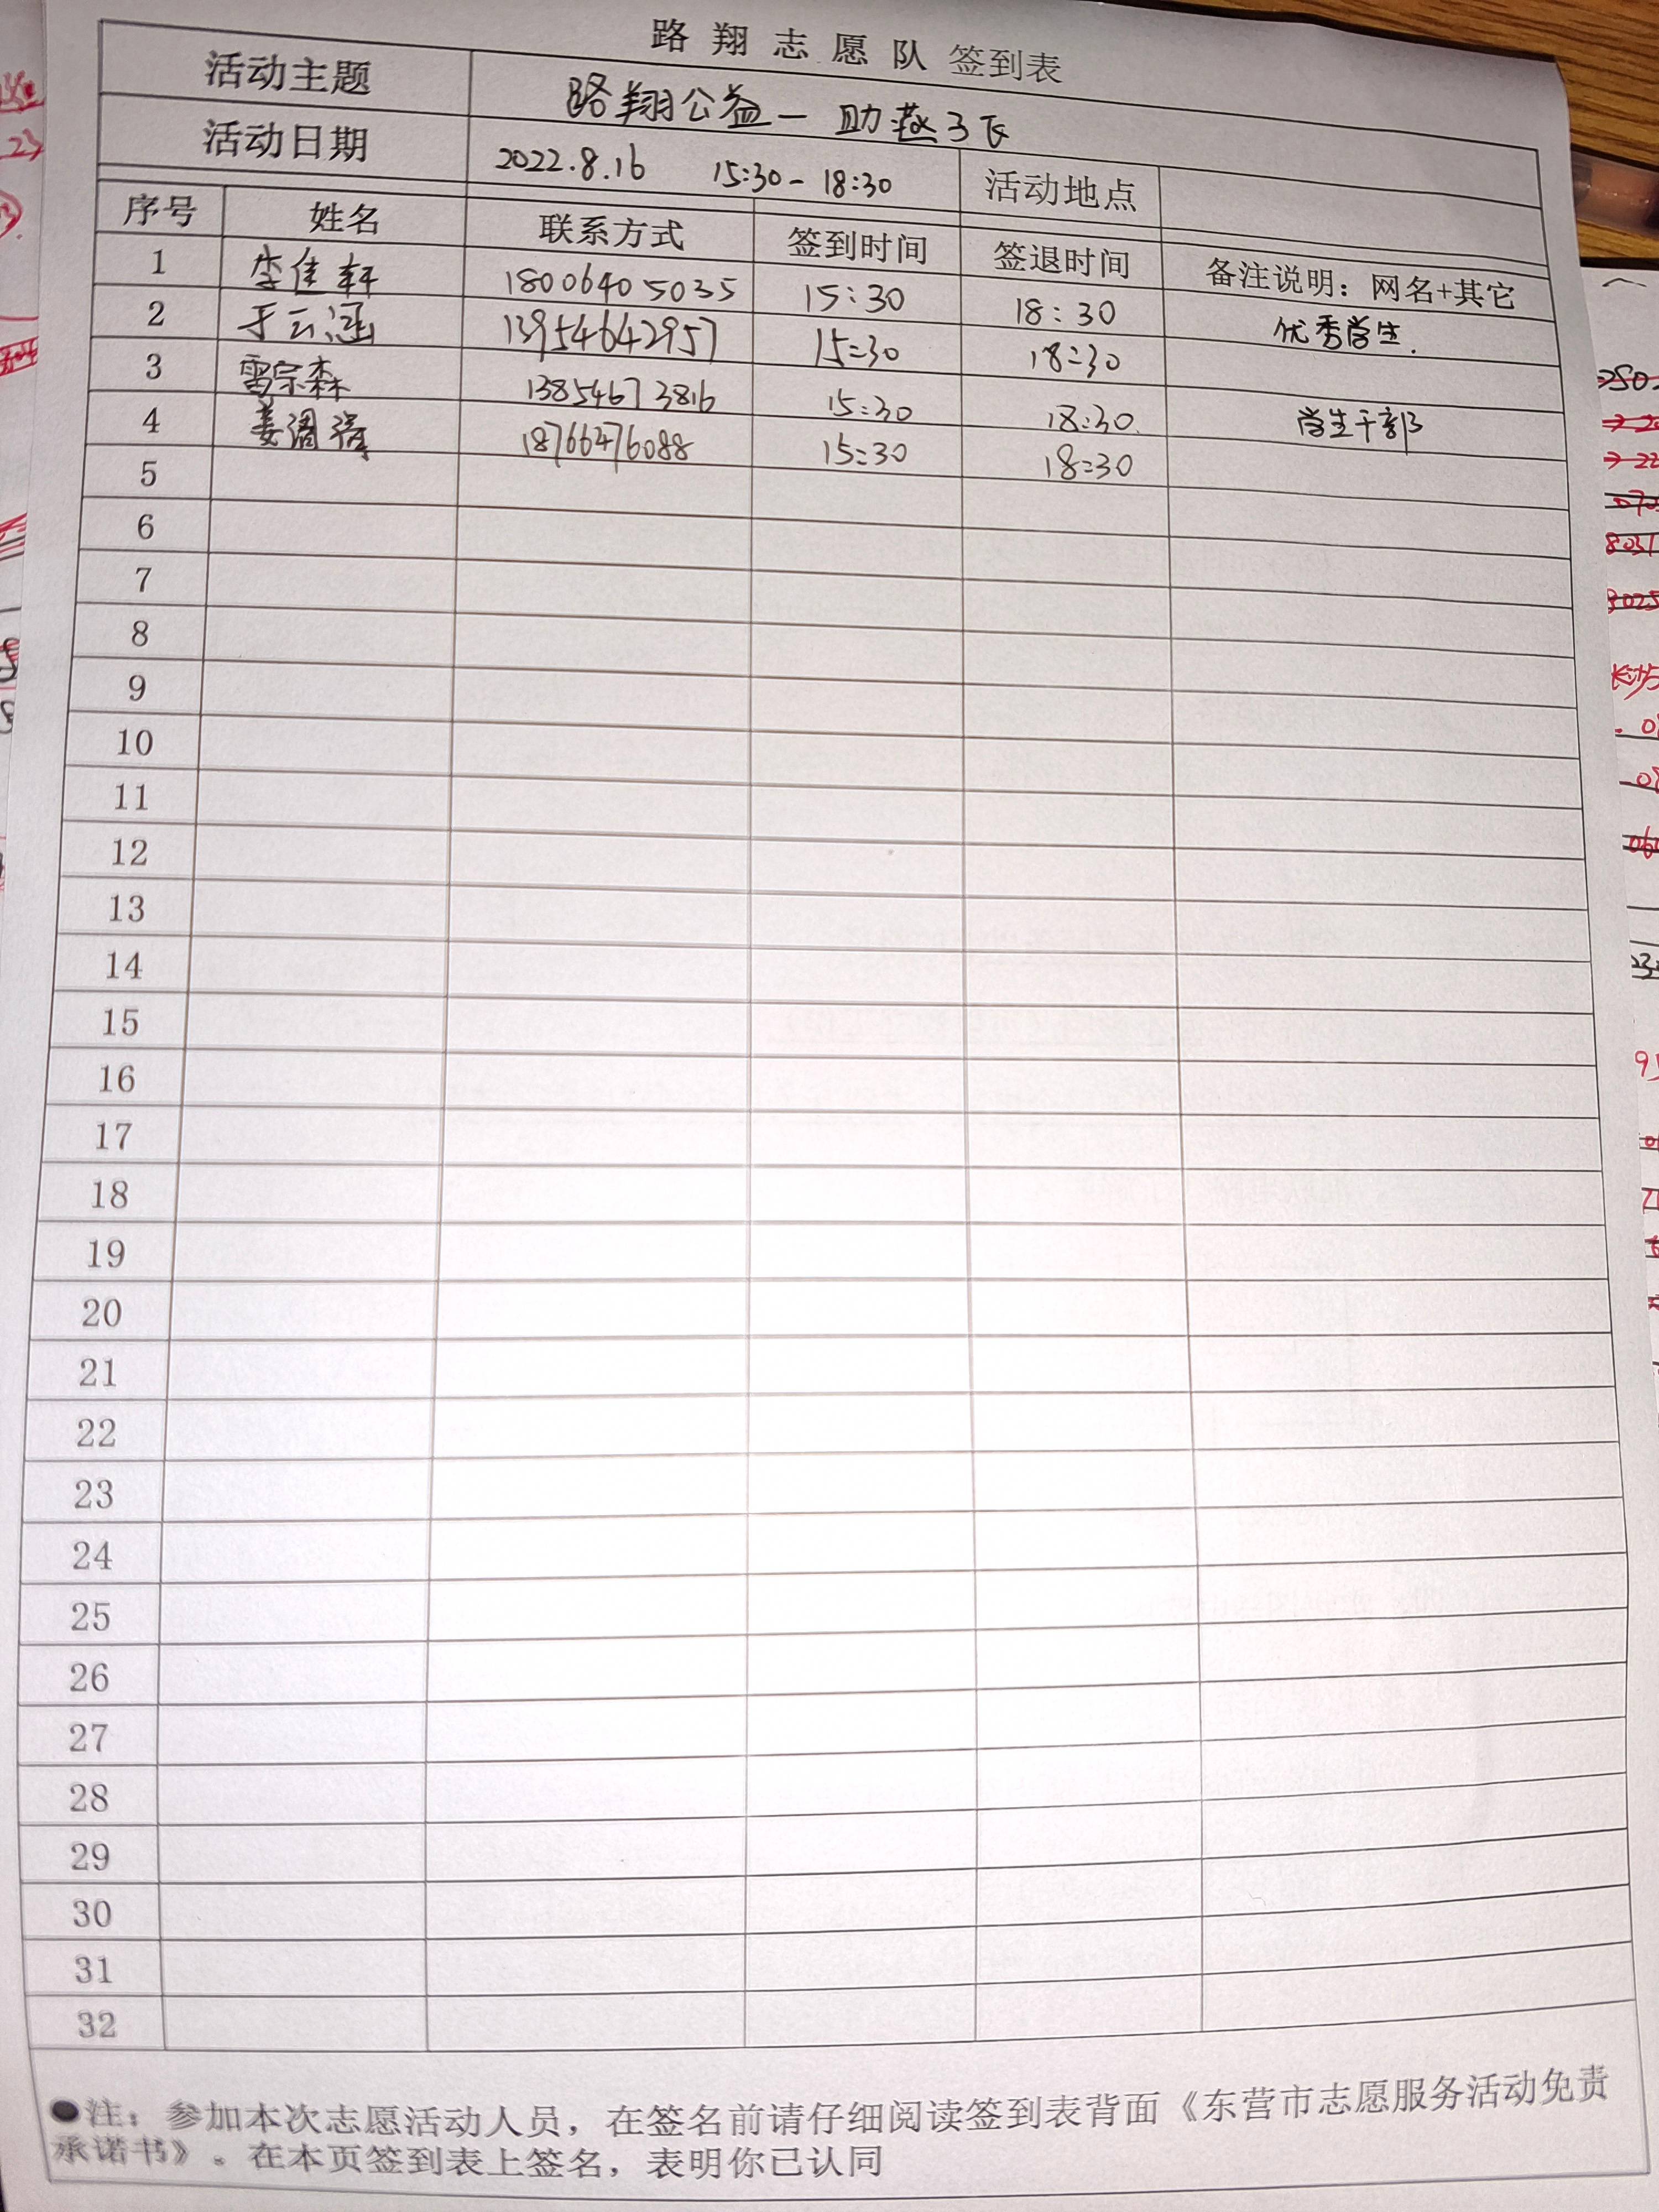 路翔志愿队 签到表
活动主题 路翔公益一助燕子飞
活动日期 2022.8.16 15:30-18:30 活动地点
序号 姓名 联系方式 签到时间 签退时间 备注说明：网名+其它
1 李佳轩 18006405035 15:30 18:30 优秀学生.
2 于云涵 13954642957 15:30 18:30
3 雷宗森 13854673816 15:30 18:30 学生干部
4 姜 18766476088 15:30 18:30
5
6
7
8
9
10
11
12
13
14
15
16
17
18
19
20
21
22
23
24
25
26
27
28
29
30
31
32
●注：参加本次志愿活动人员，在签名前请仔细阅读签到表背面《东营市志愿服务活动免责
承诺书》。在本页签到表上签名，表明你已认同